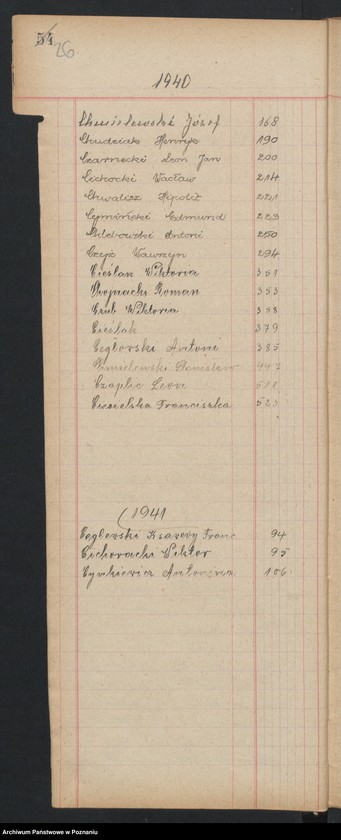 54
26
1940
Chmielewski Józef 168
Chudziak Henryk 190
Czarnecki Leon Jan 200
Cichocki Wacław 214
Chwalisz Hipolit 221
Cymiński Edmund 223
Antoni 250
Czyż Wawrzyn 294
Cieślak Wiktoria 351
Chojnacki Roman 353
Czub Wiktoria 358
Cieślak 379
Ceglorski Antoni 385
Chmielewski Stanisław 447
Czaplic Leon 518
Ciesielska Franciszka 523
1941
Ceglerski Ksawery Franc. 94
Cichoracki Wiktor 95
Cynkiewicz Antonina 106
Archiwum Państwowe w Poznaniu